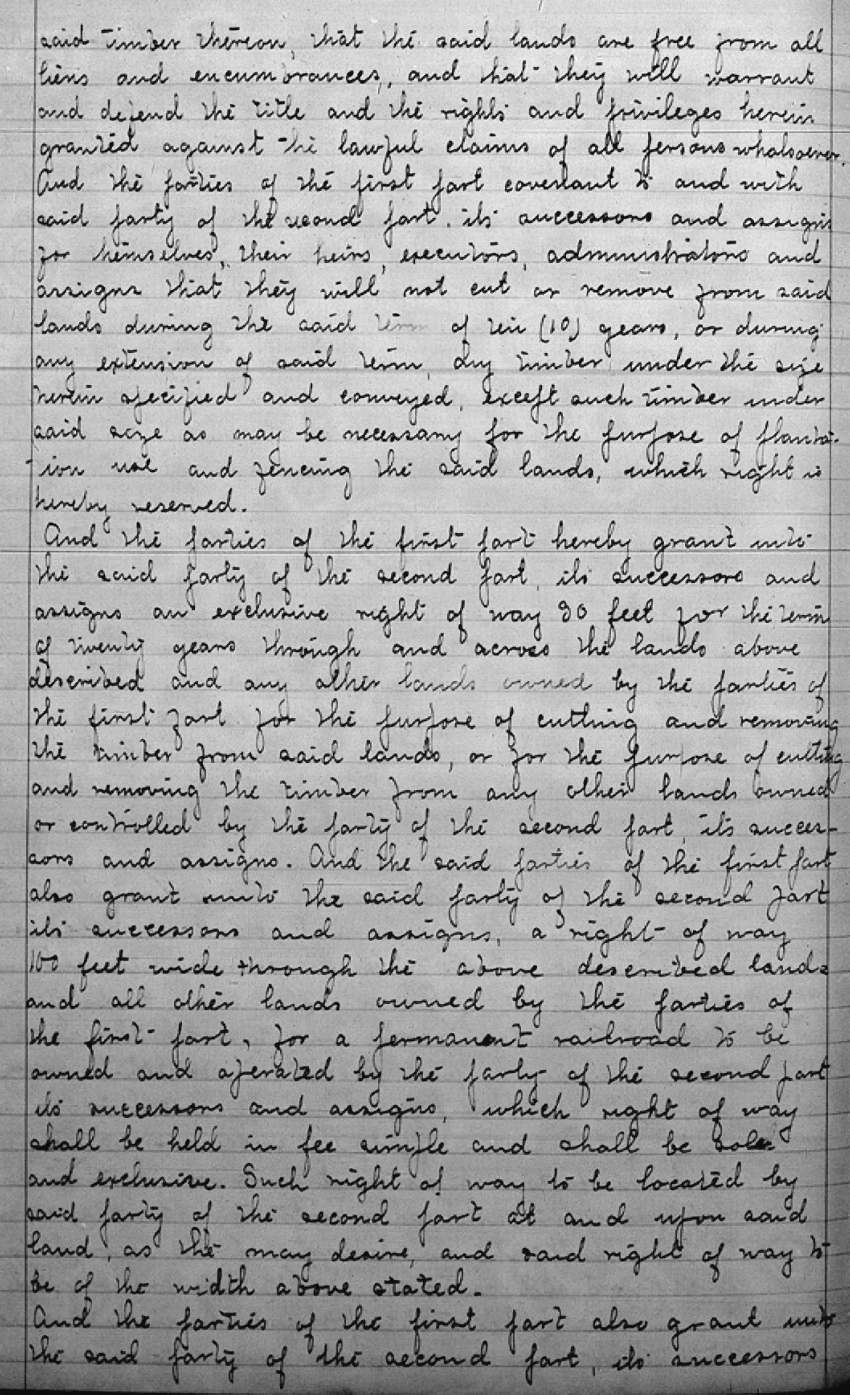 said timber thereon, that the said lands are free from all
liens and encumbrances, and that they will warrant
and defend the title and the rights and privileges herein
granted against the lawful claims of all persons whatsoever.
And the parties of the first part covenant to and with
said party of the second part, its successors and assigns
for themselves, their heirs, executors, administrators and
assigns that they will not cut or remove from said
lands during the said term of ten (10) years, or during
any extension of said term, any timber under the size
herein specified and conveyed, except such timber under
said size as may be necessary for the purpose of planta-
-ion use and fencing the said lands, which right is
hereby reserved.
And the parties of the first part hereby grant unto
the said party of the second part, its successors and
assigns an exclusive right of way 30 feet for the term
of twenty years through and across the lands above
described and any other lands owned by the parties of
the first part for the purpose of cutting and removing
the timber from said lands, or for the purpose of cutting
and removing the timber from any other lands owned
or controlled by the party of the second part, its succes-
sors and assigns. And the said parties of the first part
also grant unto the said party of the second part
its successors and assigns, a right of way
100 feet wide through the above described lands
and all other lands owned by the parties of
the first part, for a permanent railroad to be
owned and operated by the party of the second part
its successors and assigns, which right of way
shall be held in fee simple and shall be sole
and exclusive. Such right of way to be located by
said party of the second part at and upon said
land, as the may desire, and said right of way to
be of the width above stated.
And the parties of the first part also grant unto
the said party of the second part, its successors